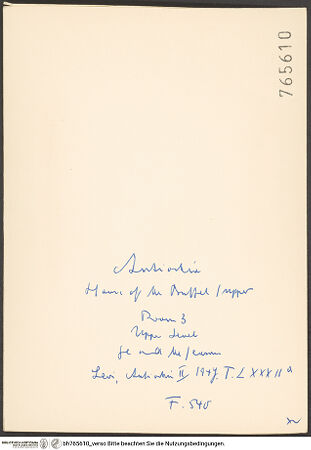 765610
Antiochia
House of the Buffet / supper
Room 3
Upper Level
Levi, Antioch II 1947. T. LXXXII a
F. 540
bh765610_verso Bitte beachten Sie die Nutzungsbedingungen.